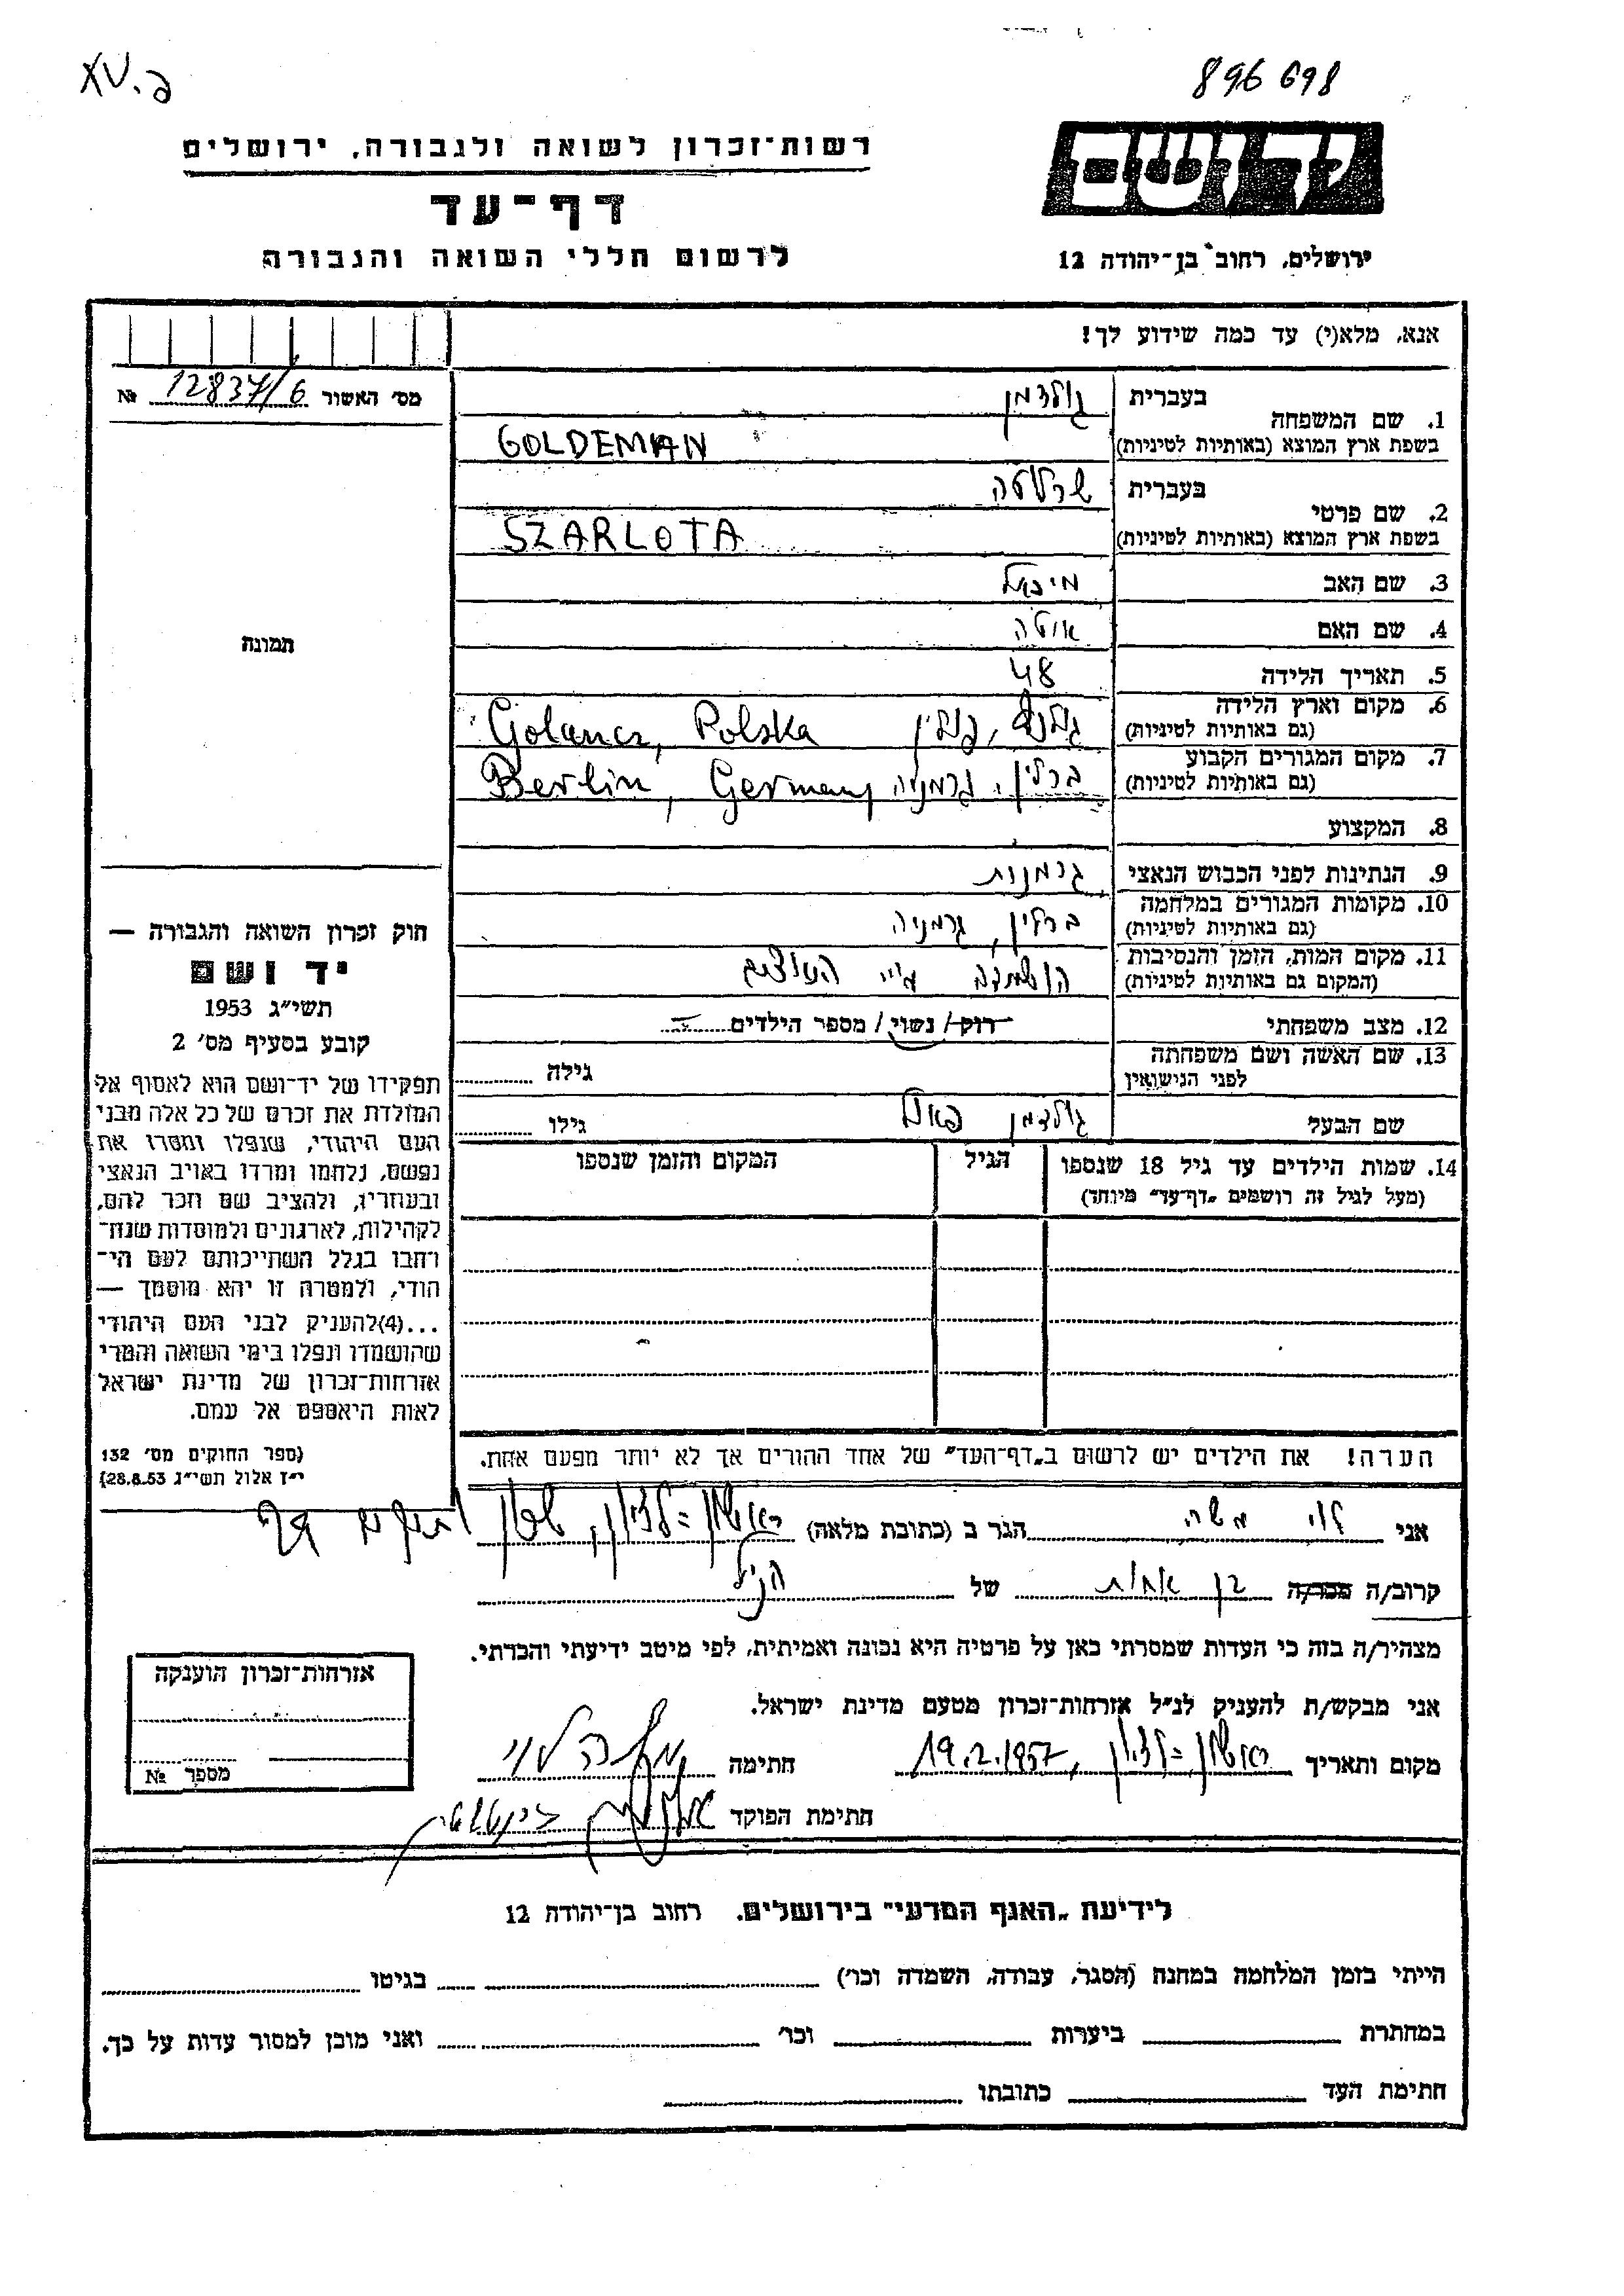 XV.פ
896 698
יד ושם
רשות־זכרון לשואה ולגבורה, ירושלים
דף־עד
לרשום חללי השואה והגבורה
ירושלים, רחוב בן־יהודה 12
אנא, מלא(י) עד כמה שידוע לך!
מס׳ האשור 12837/6 №
תמונה
1. שם המשפחה
בעברית גולדמן
בשפת ארץ המוצא (באותיות לטיניות) GOLDEMAN
2. שם פרטי
בעברית שרלוטה
בשפת ארץ המוצא (באותיות לטיניות) SZARLOTA
3. שם האב מיכאל
4. שם האם
5. תאריך הלידה 48
6. מקום וארץ הלידה
(גם באותיות לטיניות) פולין Golancz, Polska
7. מקום המגורים הקבוע
(גם באותיות לטיניות) ברלין, גרמניה Berlin, Germany
8. המקצוע
9. הנתינות לפני הכבוש הנאצי גרמנית
10. מקומות המגורים במלחמה
(גם באותיות לטיניות) ברלין, גרמניה
11. מקום המות, הזמן והנסיבות
(המקום גם באותיות לטיניות) הושמדה
12. מצב משפחתי רוק/ נשוי/ מספר הילדים
13. שם האשה ושם משפחתה
לפני הנישואין גילה
שם הבעל גולדמן פאול גילו
14. שמות הילדים עד גיל 18 שנספו
(מעל לגיל זה רושמים „דף־עד״ מיוחד)
הגיל
המקום והזמן שנספו
הערה! את הילדים יש לרשום ב„דף־העד״ של אחד ההורים אך לא יותר מפעם אחת.
חוק זכרון השואה והגבורה —
יד ושם
תשי״ג 1953
קובע בסעיף מס׳ 2
תפקידו של יד־ושם הוא לאסוף אל
המולדת את זכרם של כל אלה מבני
העם היהודי, שנפלו ומסרו את
נפשם, נלחמו ומרדו באויב הנאצי
ובעוזריו, ולהציב שם וזכר להם,
לקהילות, לארגונים ולמוסדות שנח־
רחבו בגלל השתייכותם לעם הי־
הודי, ולמטרה זו יהא מוסמך —
...(4)להעניק לבני העם היהודי
שהושמדו ונפלו בימי השואה והמרי
אזרחות־זכרון של מדינת ישראל
לאות היאספם אל עמם.
(ספר החוקים מס׳ 132
י״ז אלול תשי״ג 28.8.53)
אני לוי משה הגר ב (כתובת מלאה) ראשון־לציון, שכון ותיקים
קרוב/ה מכר/ה בן אחות של הנ״ל
מצהיר/ה בזה כי העדות שמסרתי כאן על פרטיה היא נכונה ואמיתית, לפי מיטב ידיעתי והכרתי.
אני מבקש/ת להעניק לנ״ל אזרחות־זכרון מטעם מדינת ישראל.
מקום ותאריך ראשון־לציון, 19.2.1957 חתימה משה לוי
חתימת הפוקד
אזרחות־זכרון הוענקה
מספר №
לידיעת „האגף המדעי״ בירושלים. רחוב בן־יהודת 12
הייתי בזמן המלחמה במחנה (הסגר, עבודה, השמדה וכו׳) בגיטו
במחתרת ביערות וכו׳ ואני מוכן למסור עדות על כך.
חתימת העד כתובתו